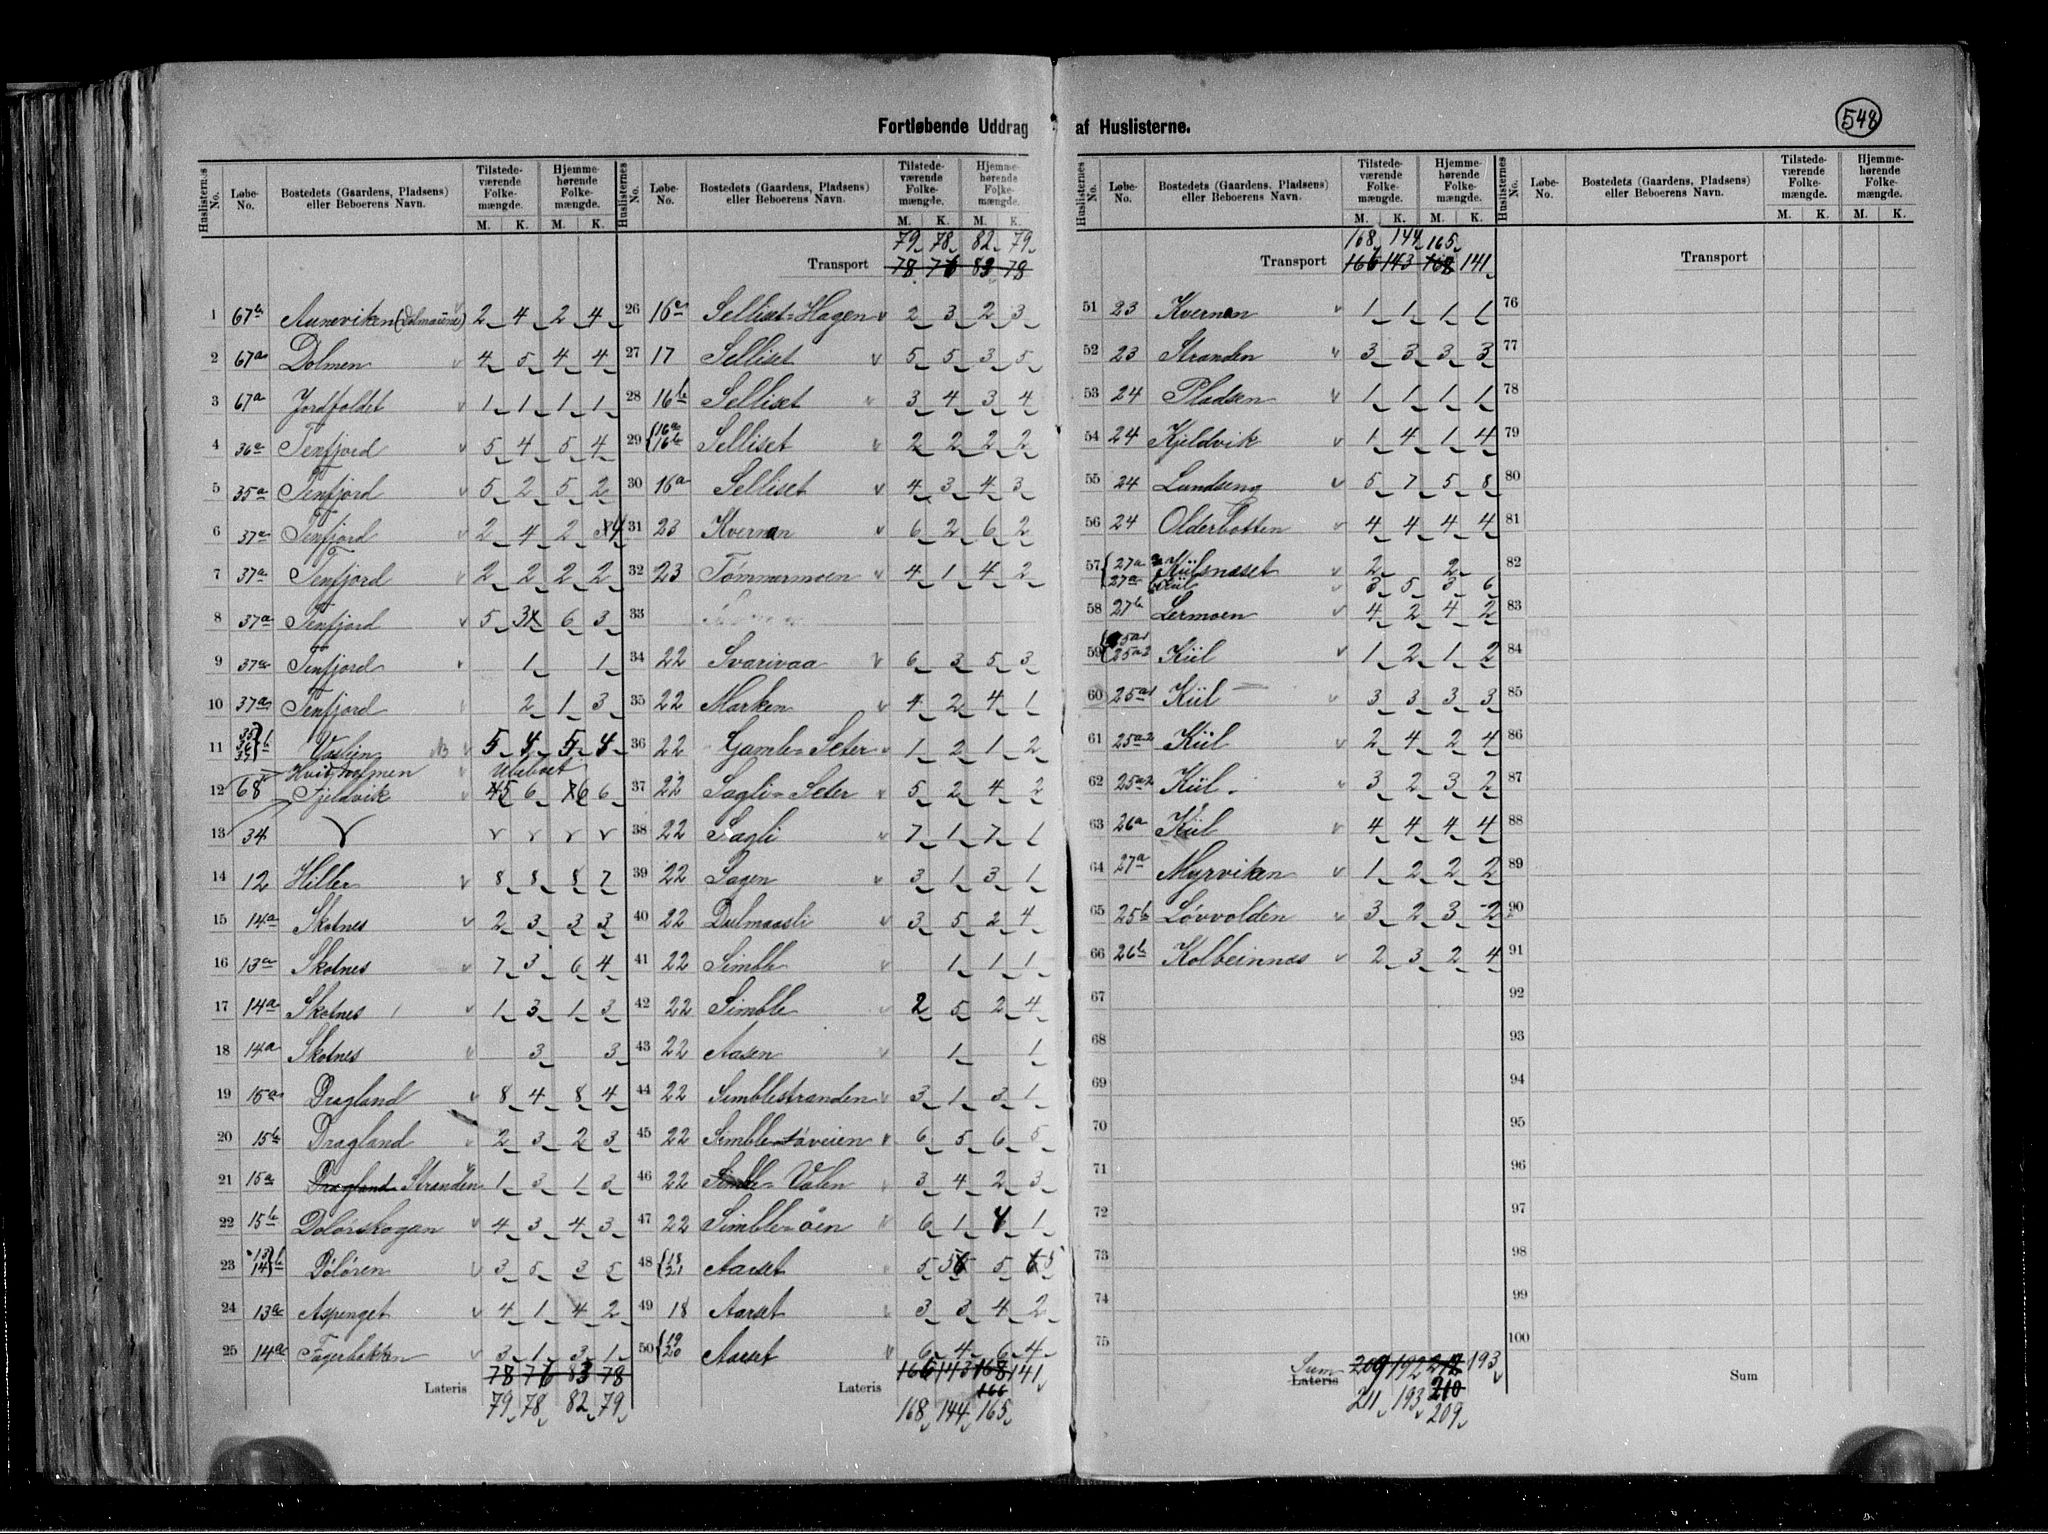 Fortløbende Uddrag af Huslisterne.
548
Huslisternes No. Løbe-No. Bostedets (Gaardens, Pladsens) eller Beboerens Navn. Tilstedeværende Folkemængde. M. K. Hjemmehørende Folkemængde. M. K.
1 67b Aunevikan 2 4 2 4
2 67a Dolmen 4 5 4 4
3 67a Jordfaldet 1 1 1 1
4 36a Tenfjord 5 4 5 4
5 35a Tenfjord 5 2 5 2
6 37a Tenfjord 2 4 2 4
7 37a Tenfjord 2 2 2 2
8 37a Tenfjord 5 3 6 3
9 37a Tenfjord 1 1
10 37a Tenfjord 2 1 3
11 35 36 37 b 5 4 5 4
Hvitholmen Ubeboet
12 68 Fjeldvik 5 6 6 6
13 34
14 12 Hiller 8 8 8 7
15 14a Skotnes 2 3 3 3
16 13a Skotnes 7 3 6 4
17 14a Skotnes 1 3 1 3
18 14a Skotnes 3 3
19 15a Dragland 8 4 8 4
20 15b Dragland 2 3 2 3
21 15a Dragland Stranden 1 3 1 3
22 15b Dolørskogan 4 3 4 3
23 13 14 b Døløren 3 5 3 5
24 13a Aspenget 4 1 4 2
25 14a Fagerbakken 3 1 3 1
78 76 83 78
Lateris
79 78 82 79
Huslisternes No. Løbe-No. Bostedets (Gaardens, Pladsens) eller Beboerens Navn. Tilstedeværende Folkemængde. M. K. Hjemmehørende Folkemængde. M. K.
79 78 82 79
Transport 78 76 83 78
26 16a Selliset-Hagen 2 3 2 3
27 17 Selliset 5 5 3 5
28 16b Selliset 3 4 3 4
29 16a 16b Selliset 2 2 2 2
30 16a Selliset 4 3 4 3
31 23 Kvernan 6 2 6 2
32 23 Tømmermoen 4 1 4 2
33
34 22 Svarivaa 6 3 5 3
35 22 Marken 4 2 4 1
36 22 Gamle-Seter 1 2 1 2
37 22 Sagli-Seter 5 2 4 2
38 22 Sagli 7 1 7 1
39 22 Sagen 3 1 3 1
40 22 Dulmaasli 3 5 2 4
41 22 Simble 1 1 1
42 22 Simble 2 5 2 4
43 22 Aasen 1 1
44 22 Simblestranden 3 1 3 1
45 22 Simbletøveien 6 5 6 5
46 22 Simble-Valen 3 4 2 3
47 22 Simble-øin 6 1 4 1
48 18 21 Aarset 5 5 5 5
49 18 Aarset 3 3 4 2
50 19 20 Aarset 6 4 6 4
166 143 168 141
Lateris 166
168 144 165
Huslisternes No. Løbe-No. Bostedets (Gaardens, Pladsens) eller Beboerens Navn. Tilstedeværende Folkemængde. M. K. Hjemmehørende Folkemængde. M. K.
168 144 165
Transport 166 143 168 141
51 23 Kvernan 1 1 1 1
52 23 Stranden 3 3 3 3
53 24 Pladsen 1 1 1 1
54 24 Kjeldvik 1 4 1 4
55 24 Lundseng 5 7 5 8
56 24 Olderbotten 4 4 4 4
57 27a Kiilsnæset 2 2
27a Kiil 3 5 3 6
58 27b Lermoen 4 2 4 2
59 25a1 25a2 Kiil 1 2 1 2
60 25a1 Kiil 3 3 3 3
61 25a2 Kiil 2 4 2 4
62 25a2 Kiil 3 2 3 2
63 26a Kiil 4 4 4 4
64 27a Myrvikan 1 2 2 2
65 25b Løvvolden 3 2 3 2
66 26b Kolbeinnes 2 3 2 4
67
68
69
70
71
72
73
74
75
Sum 209 192 212 193
Lateris 210
211 193 209
Huslisternes No. Løbe-No. Bostedets (Gaardens, Pladsens) eller Beboerens Navn. Tilstedeværende Folkemængde. M. K. Hjemmehørende Folkemængde. M. K.
Transport
76
77
78
79
80
81
82
83
84
85
86
87
88
89
90
91
92
93
94
95
96
97
98
99
100
Sum